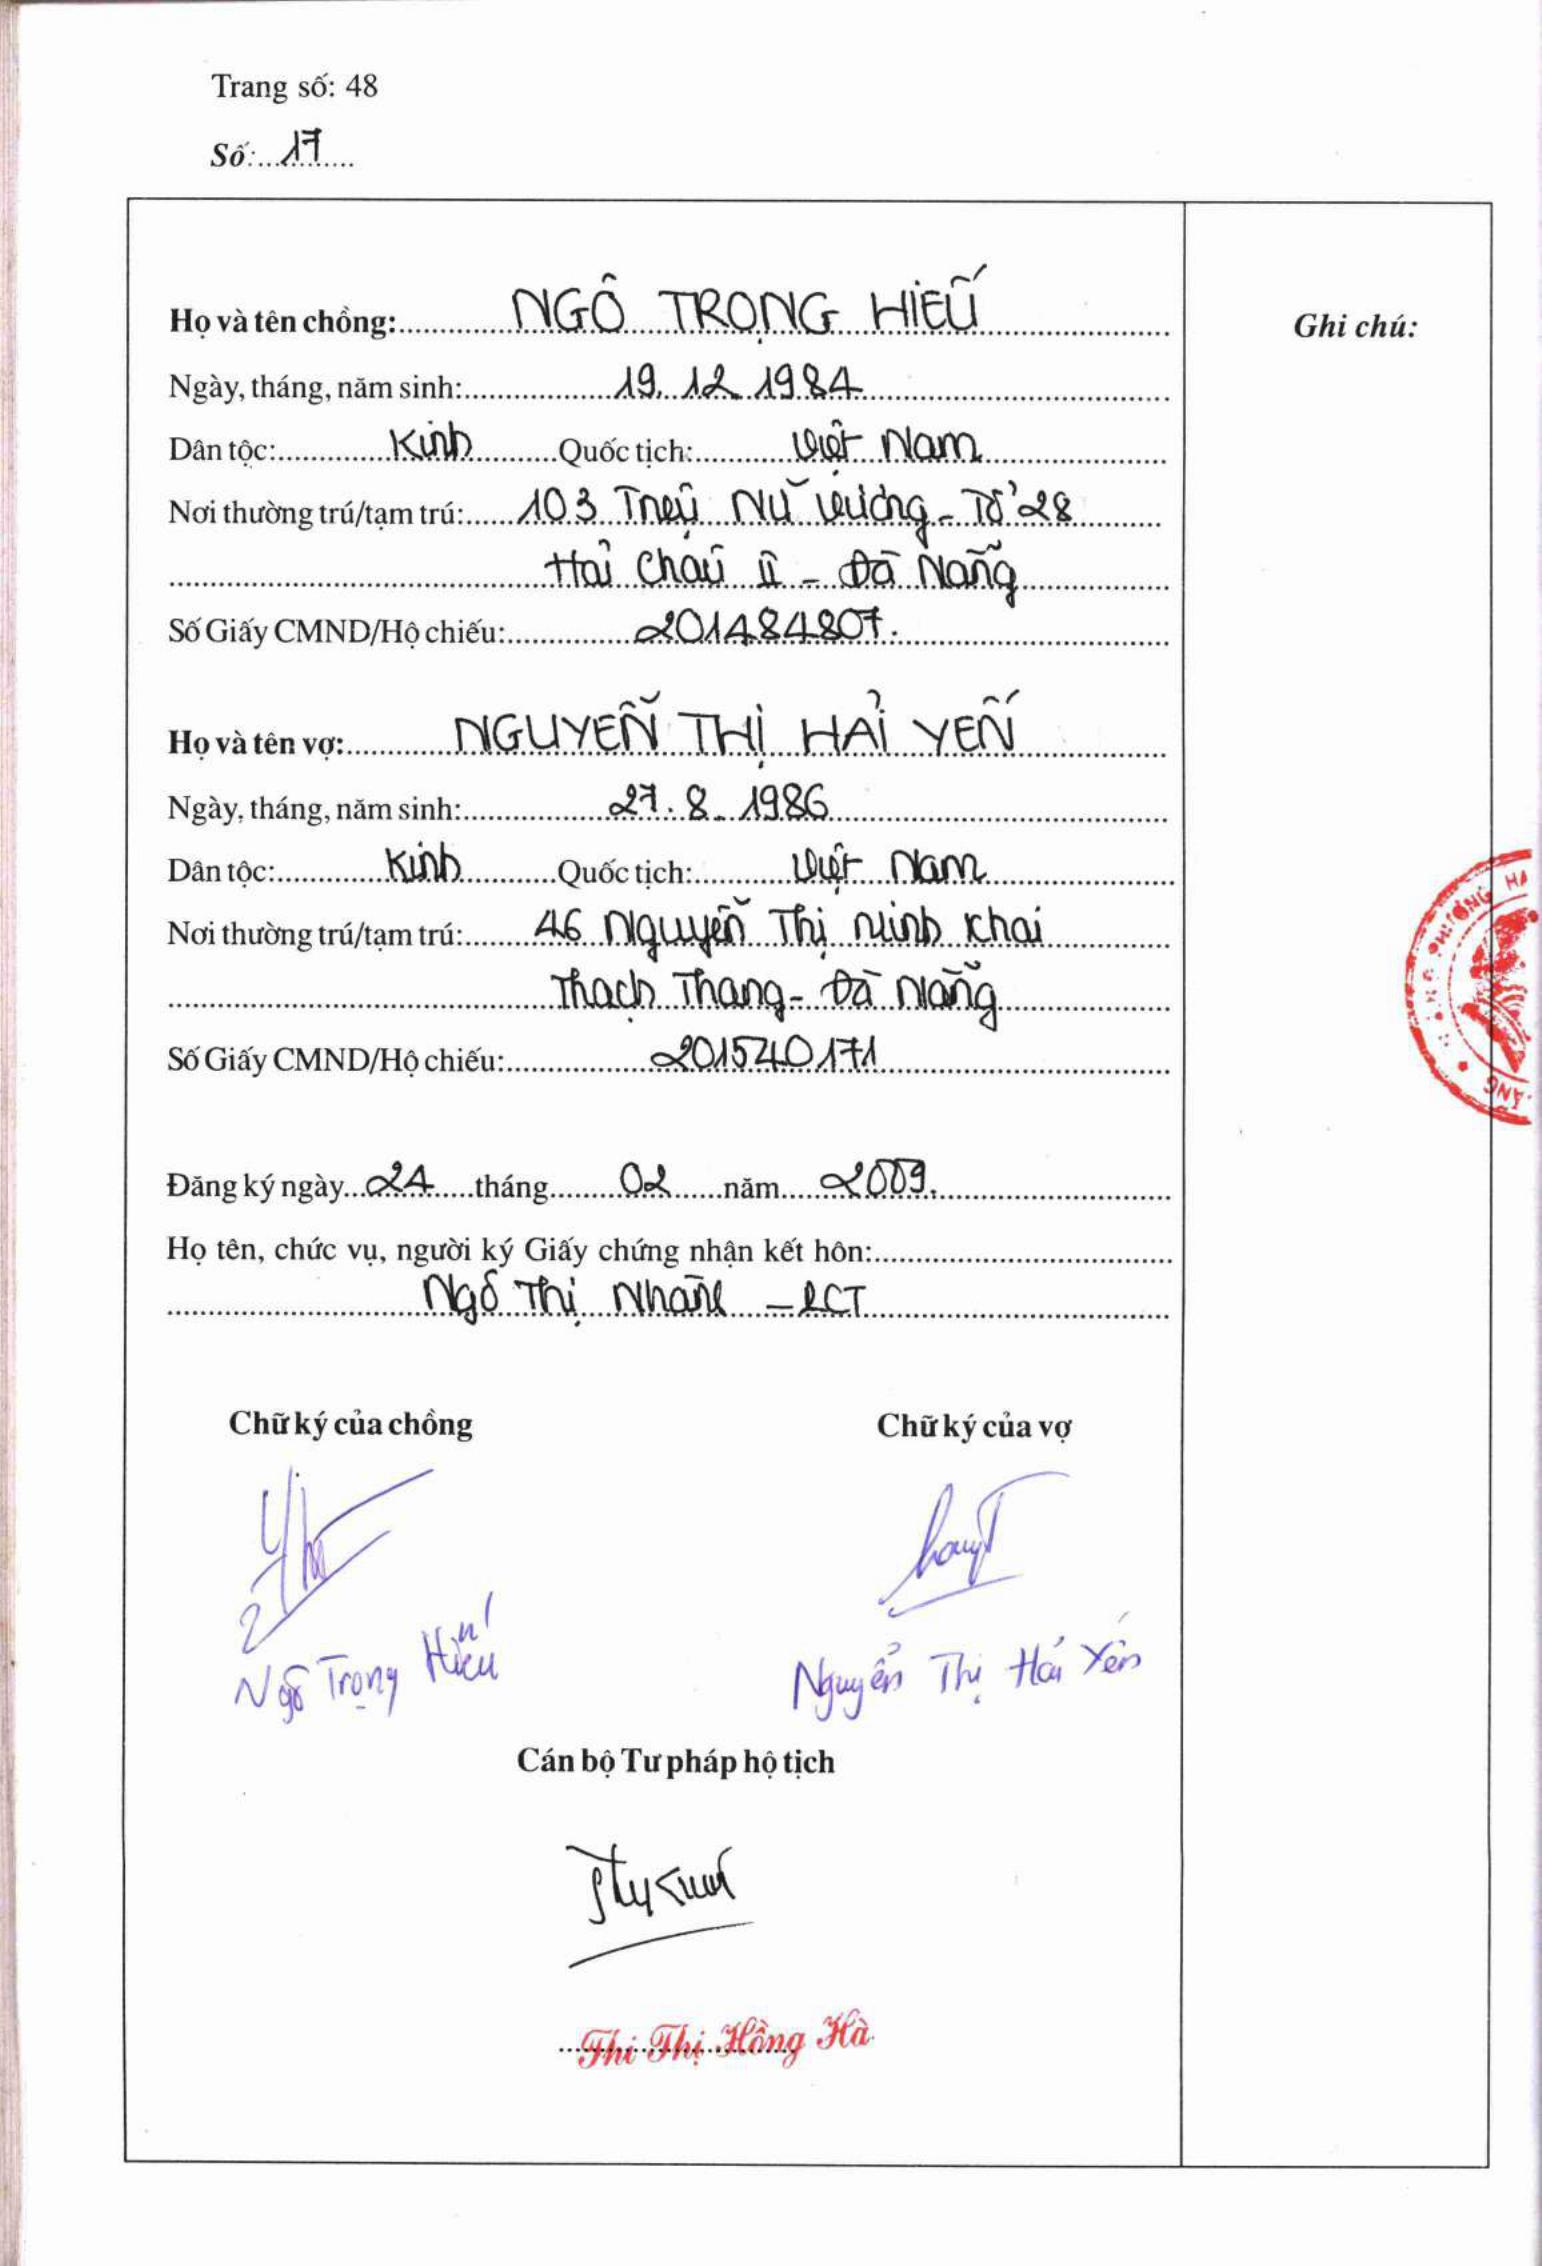 Trang số: 48
Số: 17
Họ và tên chồng: NGÔ TRỌNG HIẾU
Ghi chú:
Ngày, tháng, năm sinh: 19.12.1984
Dân tộc: Kinh Quốc tịch: Việt Nam
Nơi thường trú/tạm trú: 103 Triệu Nữ Vương - Tổ 28
Hải Châu II - Đà Nẵng
Số Giấy CMND/Hộ chiếu: 201484807.
Họ và tên vợ: NGUYỄN THỊ HẢI YẾN
Ngày, tháng, năm sinh: 27.8.1986
Dân tộc: Kinh Quốc tịch: Việt Nam
Nơi thường trú/tạm trú: 46 Nguyễn Thị Minh Khai
Thạch Thang - Đà Nẵng
Số Giấy CMND/Hộ chiếu: 201540171
Đăng ký ngày 24 tháng 02 năm 2009.
Họ tên, chức vụ, người ký Giấy chứng nhận kết hôn:
Ngô Thị Nhàn - PCT
Chữ ký của chồng
Chữ ký của vợ
Ngô Trọng Hiếu
Nguyễn Thị Hải Yến
Cán bộ Tư pháp hộ tịch
Thi Thị Hồng Hà